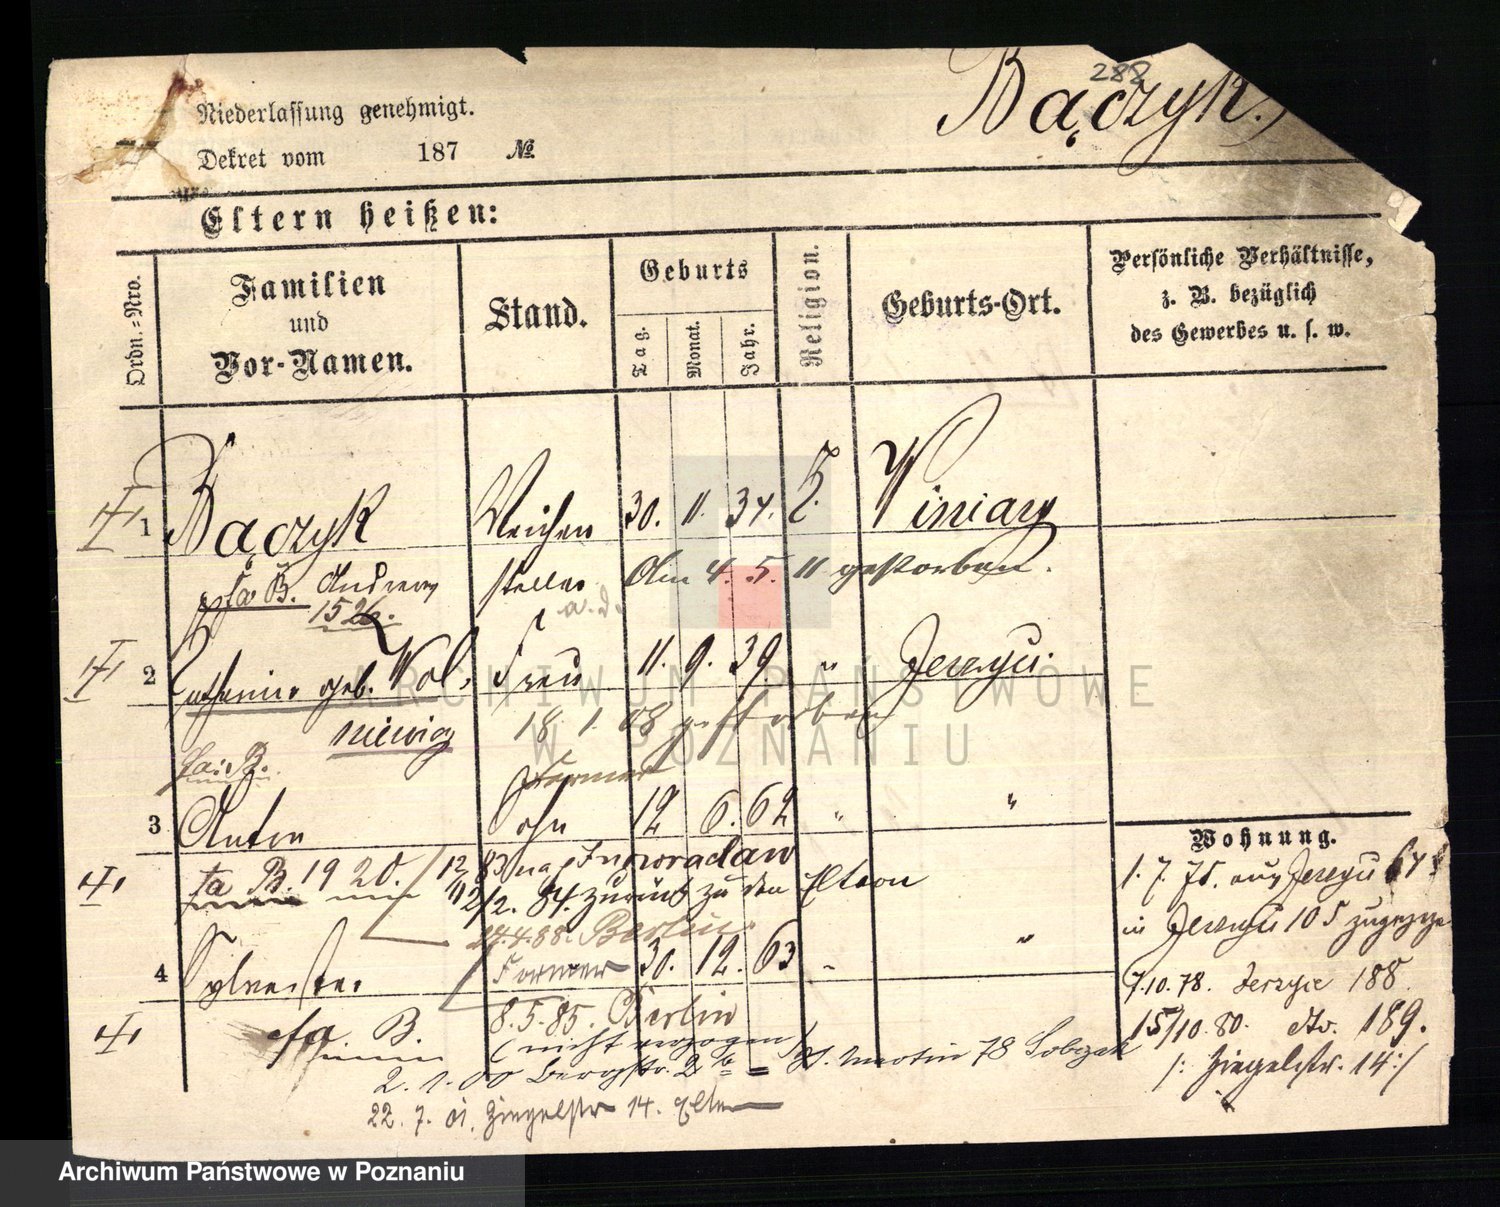 288
Bączyk.
Niederlassung genehmigt.
Dekret vom 187 №
Eltern heißen:
Ordn.=Nro.
Familien
und
Vor-Namen.
Stand.
Geburts
Tag.
Monat.
Jahr.
Religion.
Geburts-Ort.
Persönliche Verhältnisse,
z. B. bezüglich
des Gewerbes u. s. w.
1 Bączyk Weichen 30. 11. 34. Winiary
fa B. Andreas steller Am 4. 5. 11 gestorben.
1526. a. D.
2 Catharina geb. Wol, Frau 11. 9. 39 " Jerzyce.
niewicz 18. 1. 08 gestorben
fa. B. Former
3 Anton Sohn 12 6. 62 " "
fa B. 1920. 12/11 83 nach Inowraclaw
12/2. 84. zurück zu den Eltern
27.4.88. Berlin
4 Sylvester Former 30. 12. 63 " "
fa. B. 8.5.85. Berlin
( nicht verzogen
2. 1. 00 Bergstr. 2b = St. Martin 78 Sobczak
22. 7. 01. Ziegelstr 14. Eltern
Wohnung.
1. 7. 75. aus Jerzyce 64
in Jerzyce 105 zugezoge
7.10.78. Jerzyce 188.
15/10.80. dto. 189.
/: Ziegelstr. 14 :/
ARCHIWUM PAŃSTWOWE
W POZNANIU
Archiwum Państwowe w Poznaniu